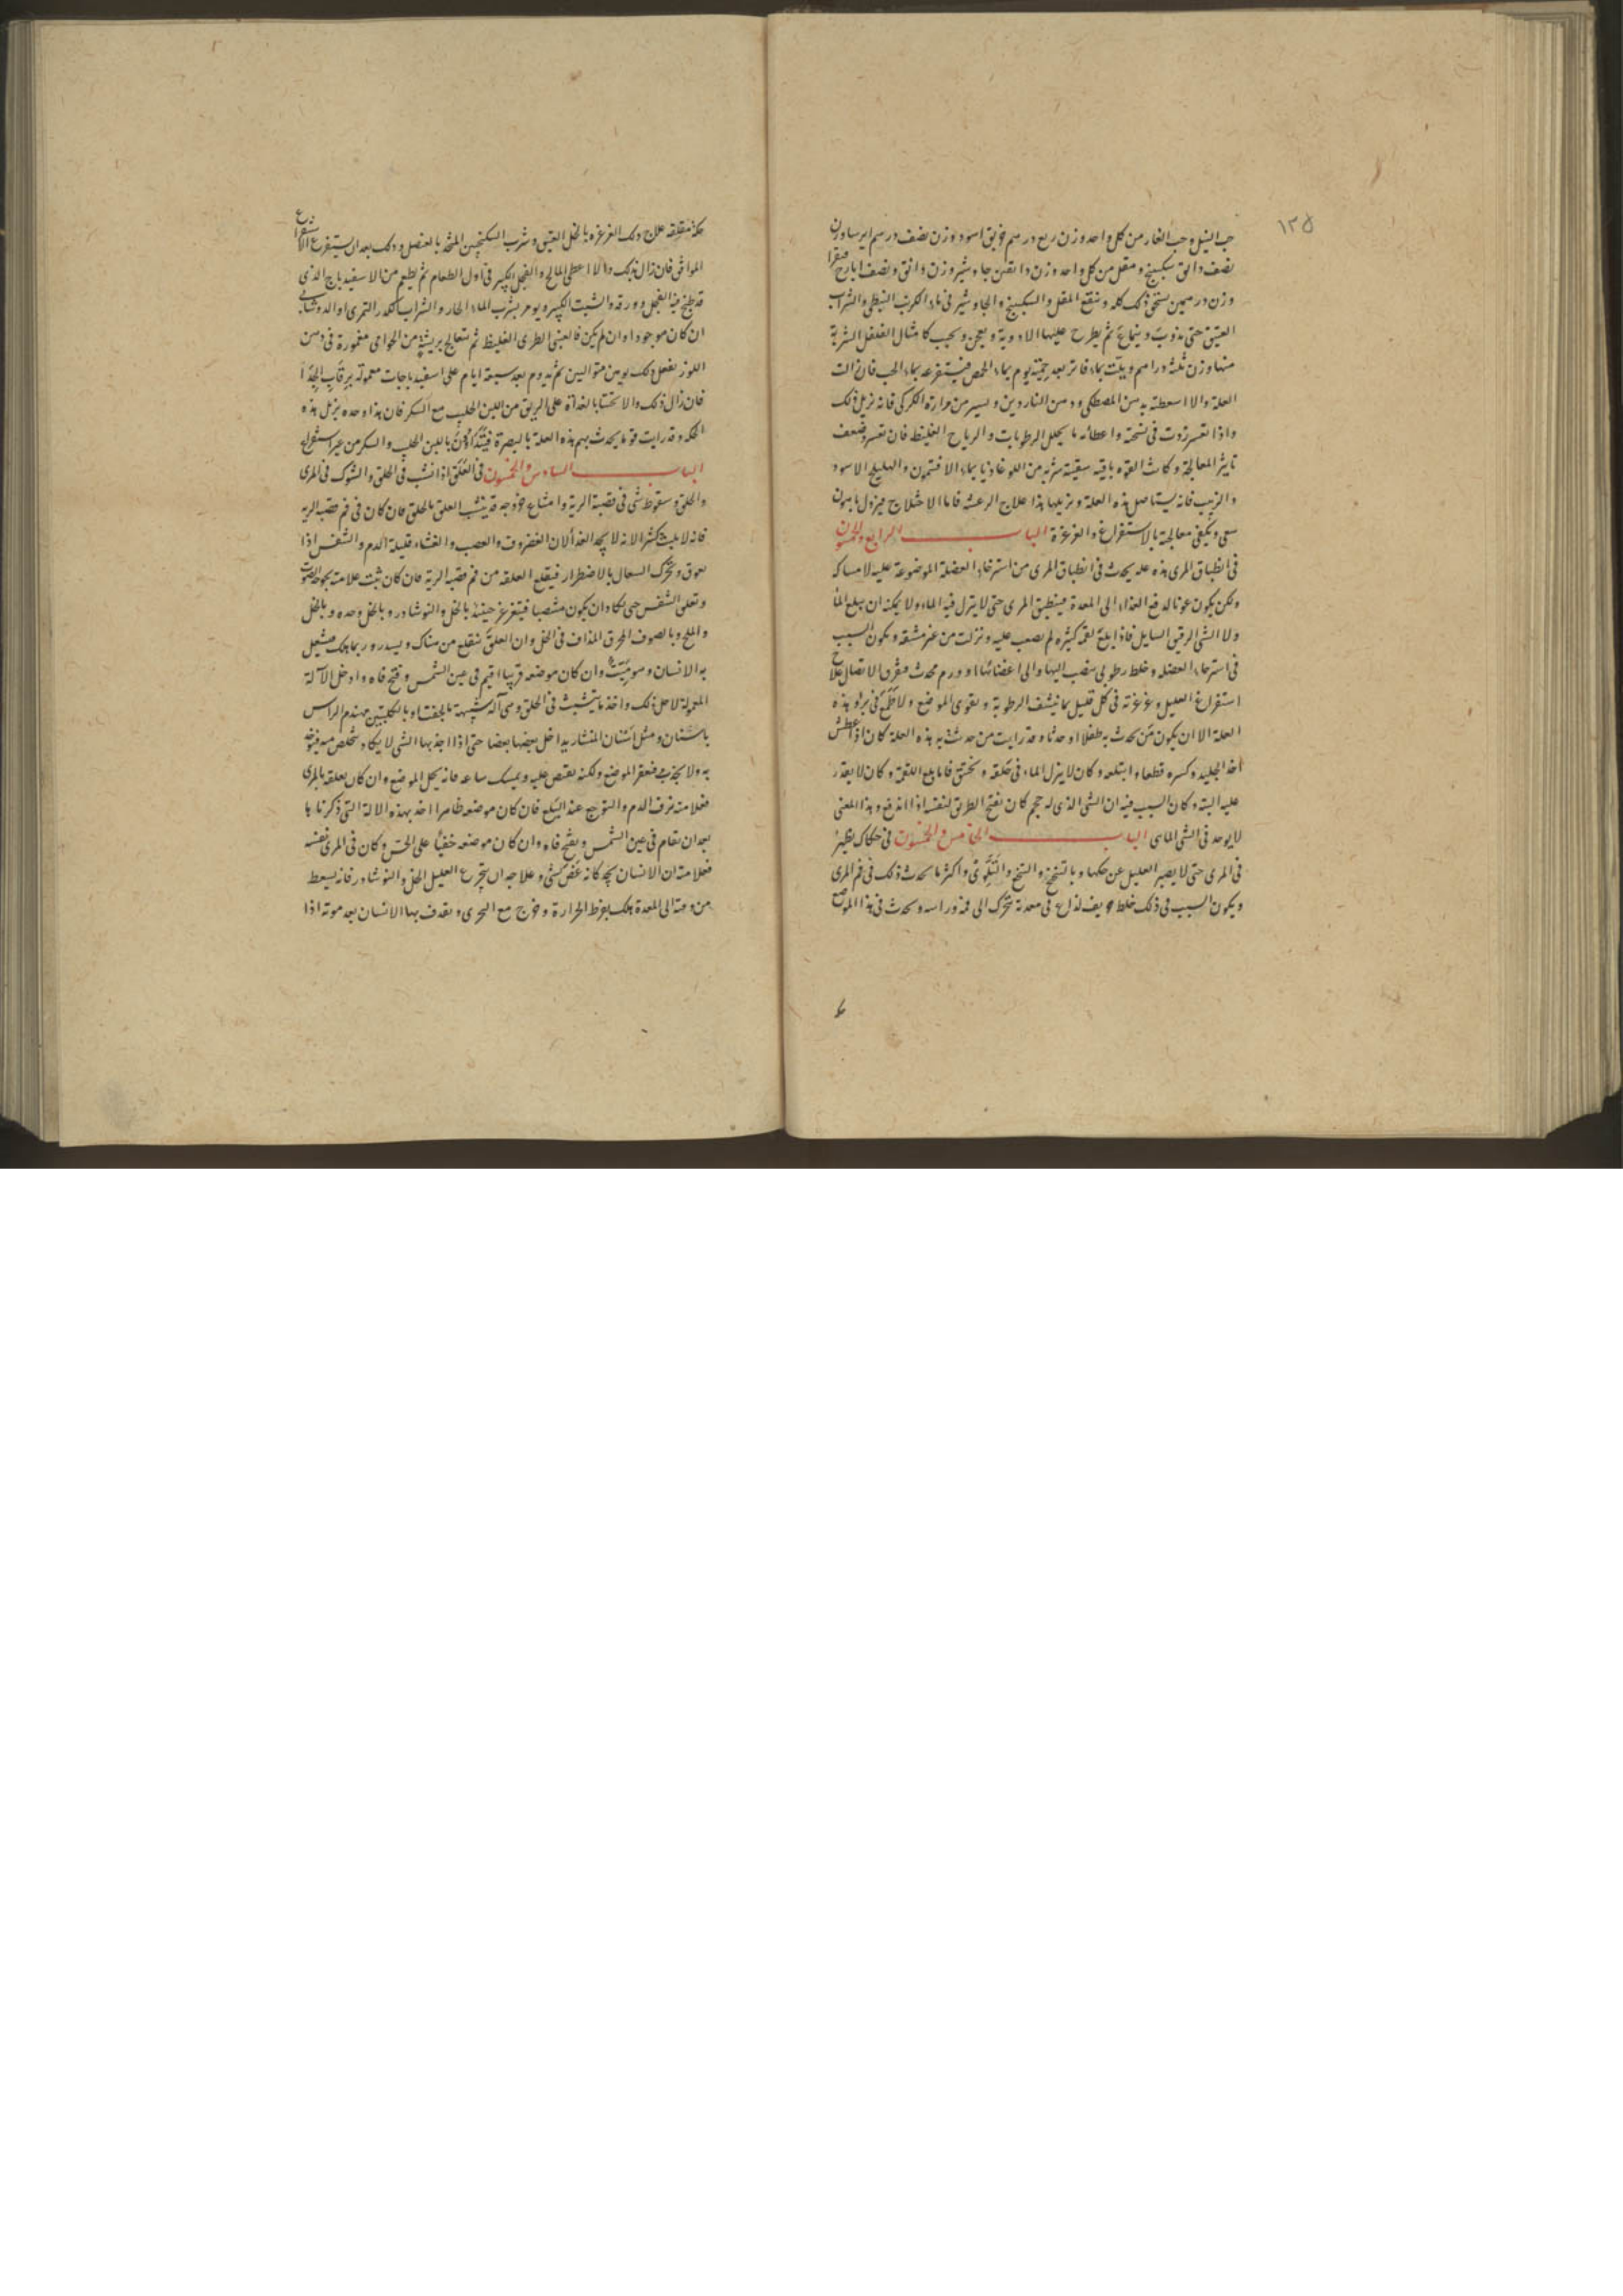 ١٣٥
حب النيل وحب الغار من كل واحد وزن ربع درهم خربق اسود وزن نصف درهم ايرسا وزن
نصف دانق سكبينج ومقل من كل واحد وزن دانقين جاوشير وزن دانق ونصف ايارج فيقرا
وزن درهمين يسحق ذلك كله وينقع المقل والسكبينج والجاوشير فى ماء الكرنب النبطى والشراب
العتيق حتى يذوب وينماع ثم يطرح عليها الادوية ويعجن ويحبب كامثال الفلفل الشربة
منها وزن ثلثة دراهم ويبلت بماء فاتر بعد حمية يوم بماء الحمص فيستفرغه بماء الحب فان زالت
العلة والا اسعطته بدهن المصطكى ودهن الناردين ويسير من مرارة الكركى فانه يزيل ذلك
واذا تعسر زدت فى نسخة واعطائه ما يحلل الرطوبات والرياح الغليظ فان تعسر وضعف
تاثير المعالجة وكانت القوه باقيه سقيته شربه من اللوغاذيا بماء الافتيمون والهليلج الاسود
والزبيب فانه يستاصل هذه العلة ويزيلها هذا علاج الرعشه فاما الاختلاج فيزول باهون
سعى ويكفى معالجته بالاستفراغ والغرغرة الباب الرابع والخمسون
فى انطباق المرى هذه عله يحدث فى انطباق المرى من استرخاء العضلة الموضوعة عليه لامساكه
ولكن يكون عونا لدفع الغذاء الى المعدة فينطبق المرى حتى لا ينزل فيه الماء ولا يمكنه ان يبلع الماء
ولا الشى الرقيق السايل فاذا بلع لقمه كثيره لم يصعب عليه ونزلت من غير مشقه ويكون السبب
فى استرخاء العضله وخلط رطوبى ينصب اليها والى اعضائها او ورم محدث مفرق الاتصال علاج
استفراغ العليل وغرغرته فى كل قليل بما ينشف الرطوبة ويقوى الموضع ولا طمع فى برو هذه
العلة الا ان يكون من تحدث به طفلا او حدثا وقد رايت من حدثت به هذه العلة كان اذا عطش
اخذ الجليد وكسره قطعا وابتلعه وكان لا ينزل الماء فى حلقه ويختنق فاما بلع اللقمة وكان لا يعتذر
عليه البته وكان السبب فيه ان الشى الذى له حجم كان يفتح الطريق لنفسه اذا اندفع وهذا المعنى
لا يوجد فى الشى المائى الباب الخامس والخمسون فى حكاك يظهر
فى المرى حتى لا يصبر العليل عن حكها وبالتنخع والتنخ والتهوع واكثر ما يحدث ذلك فى فم المرى
ويكون السبب فى ذلك خلط حريف لذاع فى معدته يتحرك الى فمه وراسه ويحدث فى هذا الموضع
حكة مقلقه علاج ذلك الغرغره بالخل العتيق وشرب السكنجبين المتخذ بالعنصل وذلك بعد ان يستفرغ الاستفراغ
الموافق فان زال بذلك والا اعطى المالح والفجل الكبير فى اول الطعام ثم يطعم من الاسفيدباج الذى
قد طبخ فيه الفجل وورقه والشبت الكثير ويومر بشرب الماء الحار والشراب الكدر التمرى او الدوشابى
ان كان موجودا وان لم يكن فالعنبى الطرى الغليظ ثم يتعالج بريشة من الخوافى مغمورة فى دهن
اللوز يفعل ذلك يومين متواليين ثم يدوم بعد سبعة ايام على اسفيدباجات معمولة برقاب الجداء
فان زال ذلك والا تحسا بالغداة على الريق من اللبن الحليب مع السكر فان هذا وحده يزيل هذه
الحكه وقد رايت قوما يحدث بهم هذه العلة بالبصرة فيتداوون باللبن الحليب والسكر من غير استفراغ
الباب السادس والخمسون فى العلق اذا نشب فى الحلق والشوك فى المرى
والحلق وسقوط شى فى قصبة الرية وامتناع خروجه قد ينشب العلق بالحلق فان كان فى فم قصبة الرية
فانه لا يلبث كثيرا لانه لا يجد الغذا لان الغضروف والعصب والغشاء قليلة الدم والتنفس اذا
تعوق وتحرك السعال بالاضطرار فيقلع العلقه من فم قصبة الرية فان كان ثبت علامته بحوحة الصوت
وتعلى التنفس حتى يكاد ان يكون منتصبا فيتغرغر حينئذ بالخل والنوشادر وبالخل وحده وبالخل
والملح وبالصوف المحرق المذاف فى الخل وان العلق تنقلع من هناك ويسدر وربما هلك
به الانسان وهو ميت وان كان موضعه قريبا اقيم فى عين الشمس وفتح فاه وادخل الآلة
المعمولة لاجل ذلك واخذ ما يتشبث فى الحلق وهى آلة شبيهة بالجفت او بالكلبتين مهندم الراس
باسنان ومثل اسنان المنشار يداخل بعضها بعضا حتى اذا اجذبها الشى لا يكاد يتخلص منه فيوخذ
به ولا يجذب فيعقر الموضع ولكنه يقبض عليه ويمسك ساعه فانه يخل الموضع وان كان تعلقه بالمرى
فعلامته نزف الدم والتوجع عند البلع فان كان موضعه ظاهرا اخذ بهذه الالة التى ذكرناها
بعد ان يقام فى عين الشمس ويفتح فاه وان كان موضعه خفيا على الحس وكان فى المرى نفسه
فعلامته ان الانسان يجد كانه عض شى وعلاجه ان يتجرع العليل الخل والنوشادر فانه يسقط
من وقته الى المعدة يهلك بفرط الحرارة وخرج مع النجوى ويقذف بها الانسان بعد موته اذا